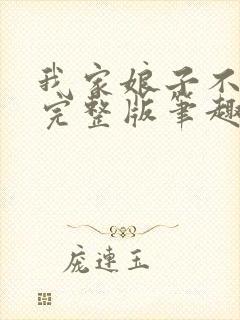 我家娘子不
完整版笔趣
庞连玉